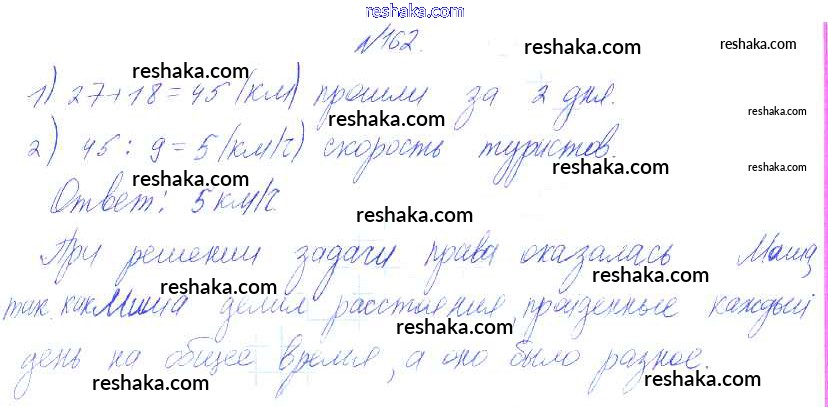 reshaka.com
№162.
reshaka.com reshaka.com
reshaka.com reshaka.com
1) 27+18=45 (км) прошли за 2 дня.
reshaka.com reshaka.com reshaka.com
2) 45:9=5 (км/ч) скорость туристов.
reshaka.com reshaka.com reshaka.com
Ответ: 5 км/ч.
reshaka.com reshaka.com
При решении задачи права оказалась Маша,
reshaka.com reshaka.com
так как Миша делил расстояния, пройденные каждый
reshaka.com reshaka.com
день на общее время, а оно было разное.
reshaka.com reshaka.com